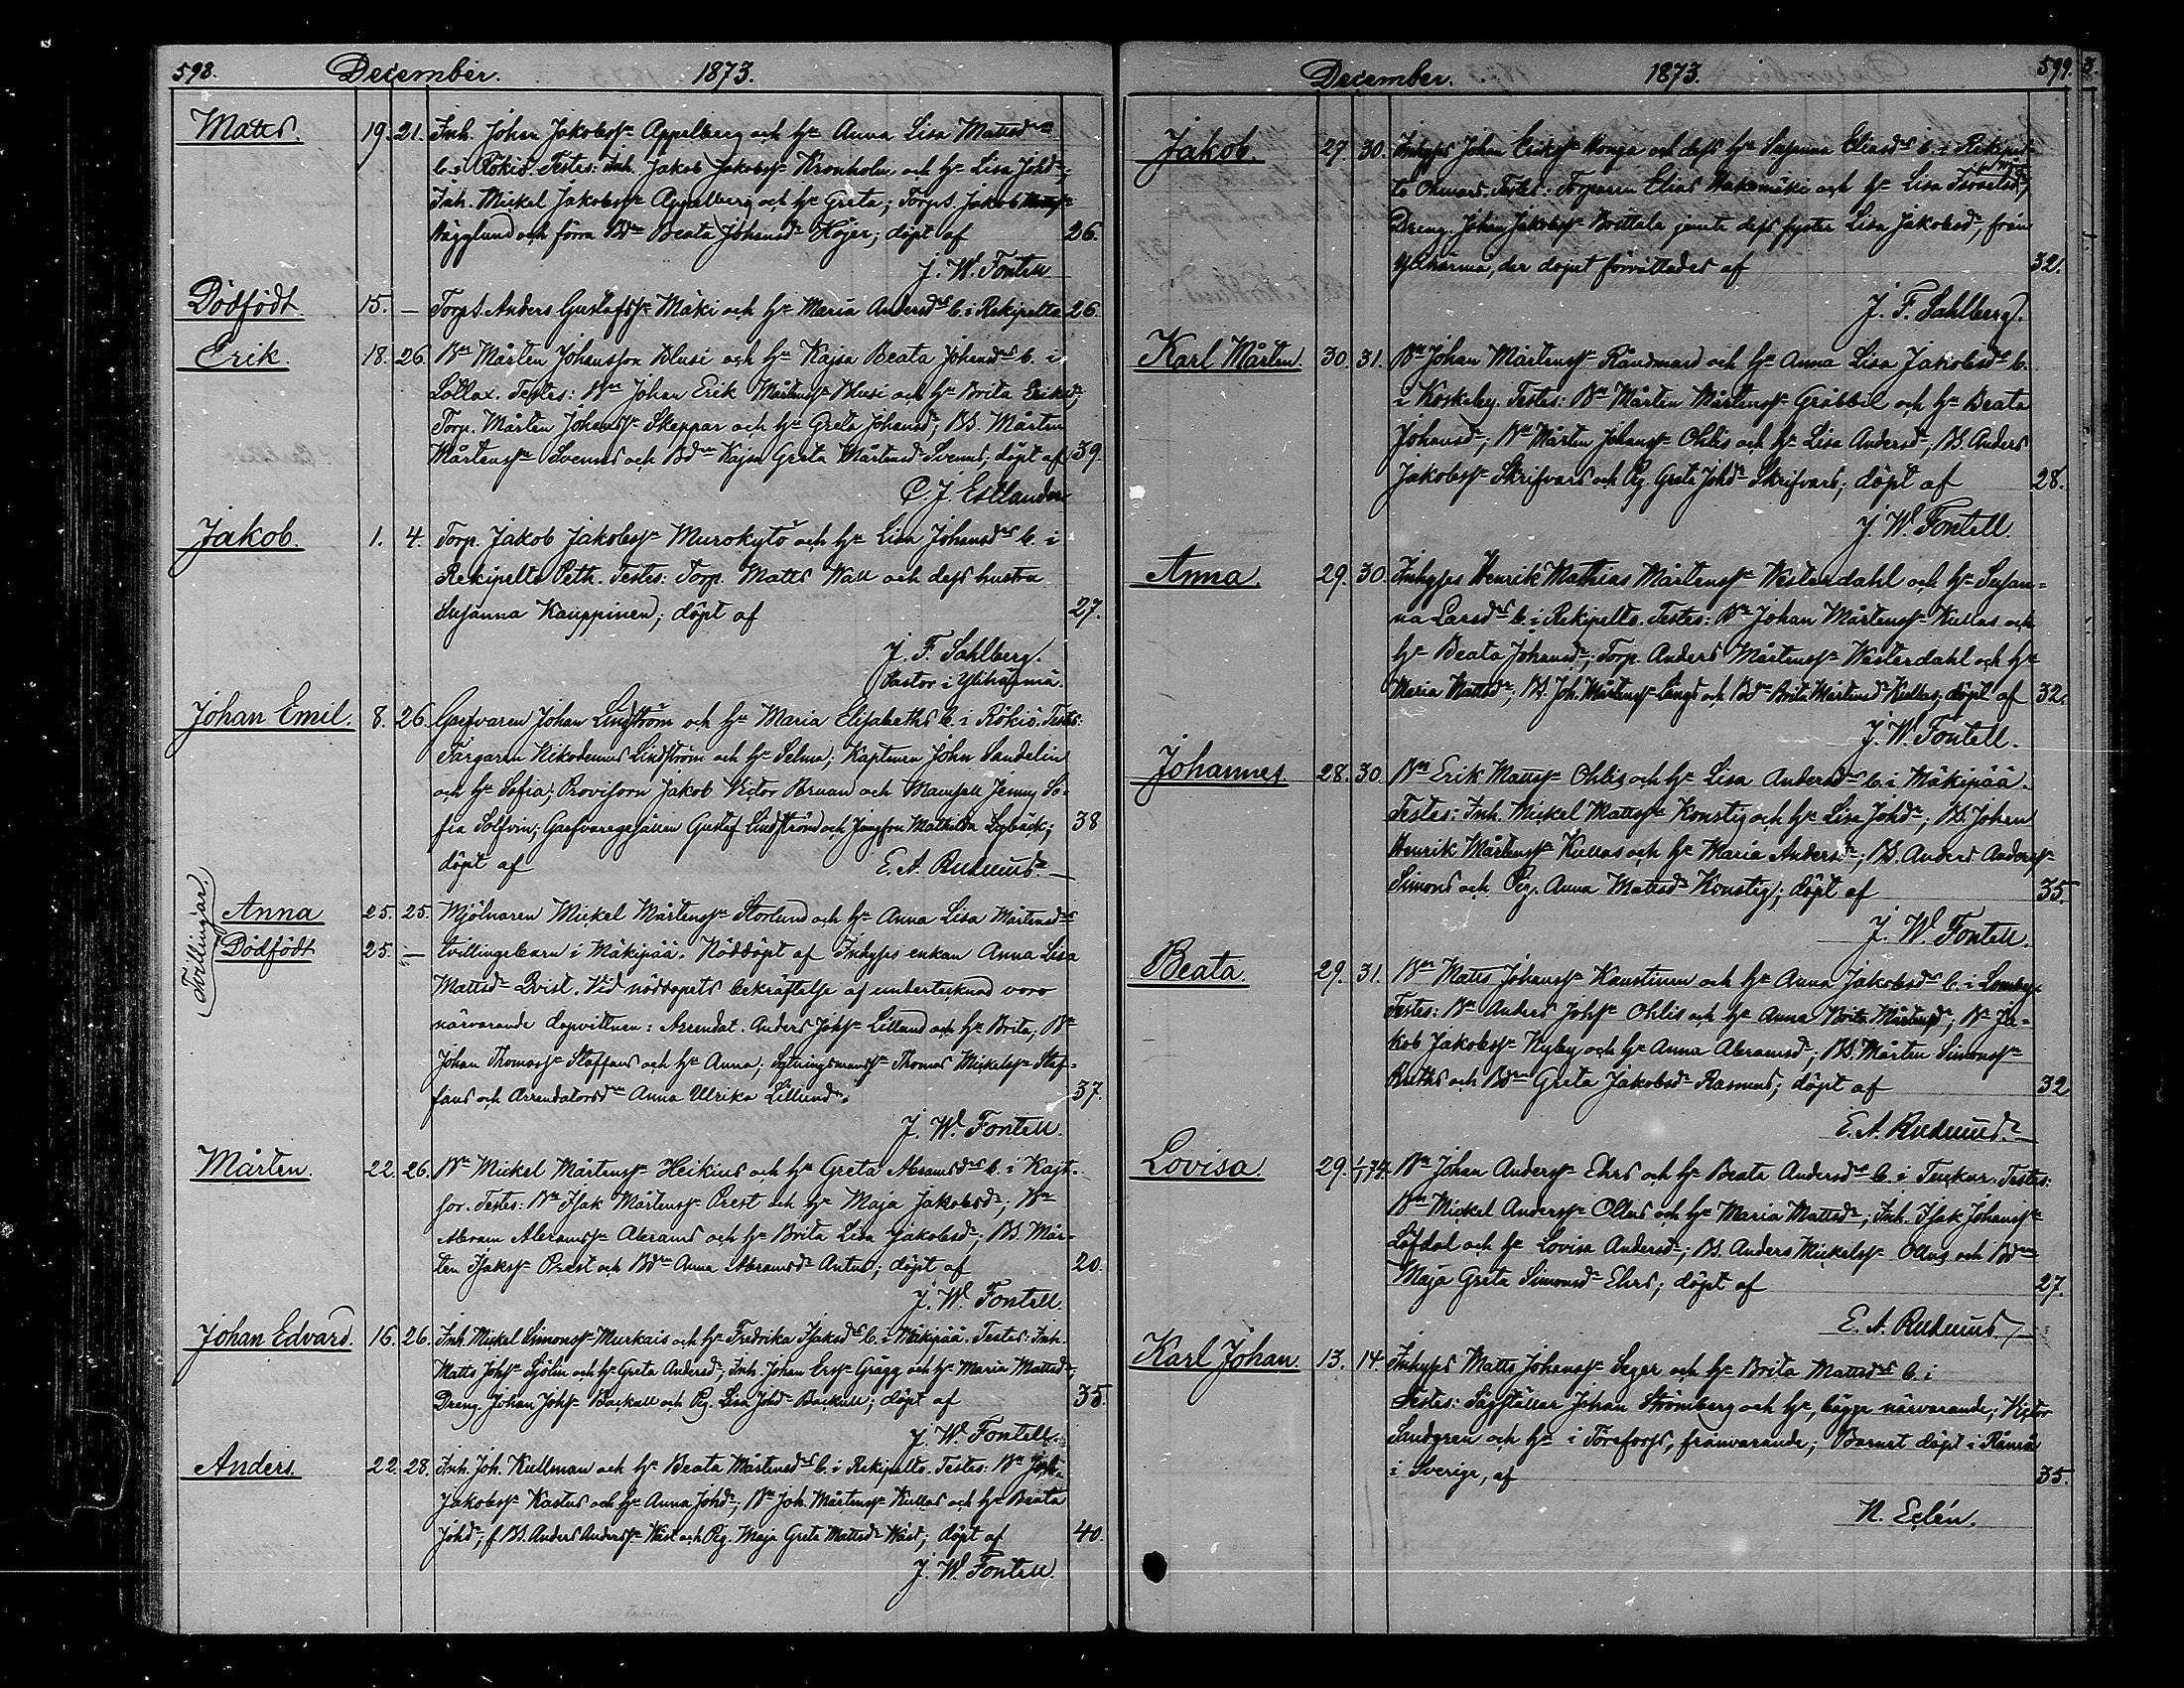 598. December. 1873.
Matts. 19. 21. Inh. Johan Jakobss. Appelberg och h. Anna Lisa Mattsd.
b. i Rökiö. Testes: Inh. Jakob Jakobss. Kronholm och h. Lisa Johd.;
Inh. Mickel Jakobss. Appelberg och h. Greta; Torps. Jakob
Hägglund och förra Bd. Beata Johansd. Höjar; döpt af 26.
J. W. Fontell
Dödfödt 15. — Torps. Anders Gustafss. Mäki och h. Maria Andersd. b. i Rekipelto 26.
Erik. 18. 26. Bn Mårten Johansson Klusi och h. Kajsa Beata Johansd. b. i
Lotlax. Testes: Bn Johan Erik Mårtenss. Klusi och h. Brita Eriksd.;
Torp. Mårten Johanss. Skeppar och h. Greta Johansd.; BS. Mårten
Mårtenss. Svenns och Bdn Kajsa Greta Mårtensd. Svenns; döpt af 39.
C. J. Estlander
Jakob. 1. 4. Torp. Jakob Jakobss. Murokytö och h. Lisa Johansd. b. i
Rekipelto Peth. Testes: Torp. Matts Wall och dess hustru
Susanna Kauppinen; döpt af 27.
J. F. Sahlberg.
Pastor i Ylihärmä.
Johan Emil. 8. 26. Garfvaren Johan Lindström och h. Maria Elisabeths b. i Rökiö. Testes:
Färgaren Nikodemus Lindström och h. Selma; Kaptenen John Sandelin
och h. Sofia; Provisorn Jakob Victor Bruun och Mamsell Jenny So-
fia Solfvin; Garfvaregesällen Gustaf Lindström och Jungfru Mathilda Lybäck; 38
döpt af E. A. Rudnäs.
Tvillingar.
Anna 25. 25. Mjölnaren Mickel Mårtenss. Storlund och h. Anna Lisa Mårtensd.
Dödfödt 25. — tvillingebarn i Mäkipää. Nöddöpt af Inhyses enkan Anna Lisa
Mattsd. Qvist. Vid nöddopets bekräftelse af undertecknad voro
närvarande dopvittnen: Arrendat. Anders Johs. Lillund och h. Brita; Bn
Johan Thomass. Staffans och h. Anna; Sytningsmanss. Thomas Mickelss. Staf-
fans och Arrendatorsd. Anna Ulrika Lillund. 37.
J. W. Fontell.
Mårten. 22. 26. Bn Mickel Mårtenss. Heikius och h. Greta Abramsd. b. i Kajt-
for. Testes: Bn Isak Mårtenss. Prest och h. Maja Jakobsd.; Bn
Abram Abramss. Abrams och h. Brita Lisa Jakobsd.; BS. Mår-
ten Isakss. Prest och Bdn Anna Abramsd. Antus; döpt af 20.
J. W. Fontell.
Johan Edvard. 16. 26. Inh. Mickel Simonss. Murkais och h. Fredrika Isaksd. b. i Mäkipää. Testes: Inh.
Matts Johs. Sjölin och h. Greta Andersd.; Inh. Johan Erss. Grägg och h. Maria Mattsd.;
Dreng. Johan Johs. Backull och Pig. Lisa Johd. Backull; döpt af 35.
J. W. Fontell.
Anders. 22. 28. Inh. Joh. Kullman och h. Beata Mårtensd. b. i Rekipelto. Testes: Bn Joh.
Jakobss. Kastus och h. Anna Johd.; Bn Joh. Mårtenss. Kullas och h. Beata
Johd.; f. BS. Anders Anderss. Wäst och Pig. Maja Greta Mattsd. Wäst; döpt af 40.
J. W. Fontell.
December. 1873. 599. 3.
Jakob. 27. 30. Inhyses Johan Erikss. Honga och dess h. Susanna Eliasd. b. i Rekipel-
to Oravais. Testes: Torparen Elias Hakomäki och h. Lisa
Dreng. Johan Jakobss. Krittala jemte dess syster Lisa Jakobsd., från
Ylihärmä, der dopet förrättades af 32.
J. F. Sahlberg.
Karl Mårten. 30. 31. Bn Johan Mårtenss. Råndmars och h. Anna Lisa Jakobsd. b.
i Koskeby. Testes: Bn Mårten Mårtenss. Gräbbil och h. Beata
Johansd.; Bn Mårten Johanss. Ohlis och h. Lisa Andersd.; BS. Anders
Jakobss. Skrifvars och Pig. Greta Johd. Skrifvars; döpt af 28.
J. W. Fontell.
Anna. 29. 30. Inhyses Henrik Mathias Mårtenss. Westerdahl och h. Susan-
na Larsd. b. i Rekipelto. Testes: Bn Johan Mårtenss. Kullas och
h. Beata Johansd.; Torp. Anders Mårtenss. Westerdahl och h.
Maria Mattsd.; BS. Joh. Mårtenss. Långs och Bdn Brita Mårtensd. Kullas; döpt af 32.
J. W. Fontell.
Johannes 28. 30. Bn Erik Mattss. Ohlis och h. Lisa Andersd. b. i Mäkipää.
Testes: Inh. Mickel Mattss. Konstig och h. Lisa Johd.; BS. Johan
Henrik Mårtenss. Kullas och h. Maria Andersd.; BS. Anders Anderss.
Simons och Pig. Anna Mattsd. Konstig; döpt af 35.
J. W. Fontell.
Beata. 29. 31. Bn Matts Johanss. Kaustinen och h. Anna Jakobsd. b. i Lomby.
Testes: Bn Anders Johs. Ohlis och h. Anna Brita Mårtensd.; Bn Ja-
kob Jakobss. Nyby och h. Anna Abramsd.; BS. Mårten Simonss.
Ruths och Bdn Greta Jakobsd. Rasmus; döpt af 32
E. A. Rudnäs.
Lovisa. 29. 1/1 74. Bn Johan Anderss. Ehrs och h. Beata Andersd. b. i Tuckur. Testes:
Bn Mickel Anderss. Ollus och h. Maria Mattsd.; Inh. Isak Johanss.
Löfdal och h. Lovisa Andersd.; BS. Anders Mickelss. Ollus och Bdn
Maja Greta Simonsd. Ehrs; döpt af 27.
E. A. Rudnäs.
Karl Johan. 13. 14. Inhyses Matts Johanss. Seger och h. Brita Mattsd. b. i
Testes: Sågställar Johan Strömberg och h., bägge närvarande; Victor
Sandgren och h. i Töreforss, frånvarande; Barnet döpt i Råneå
i Sverige, af 35.
N. Eclén.